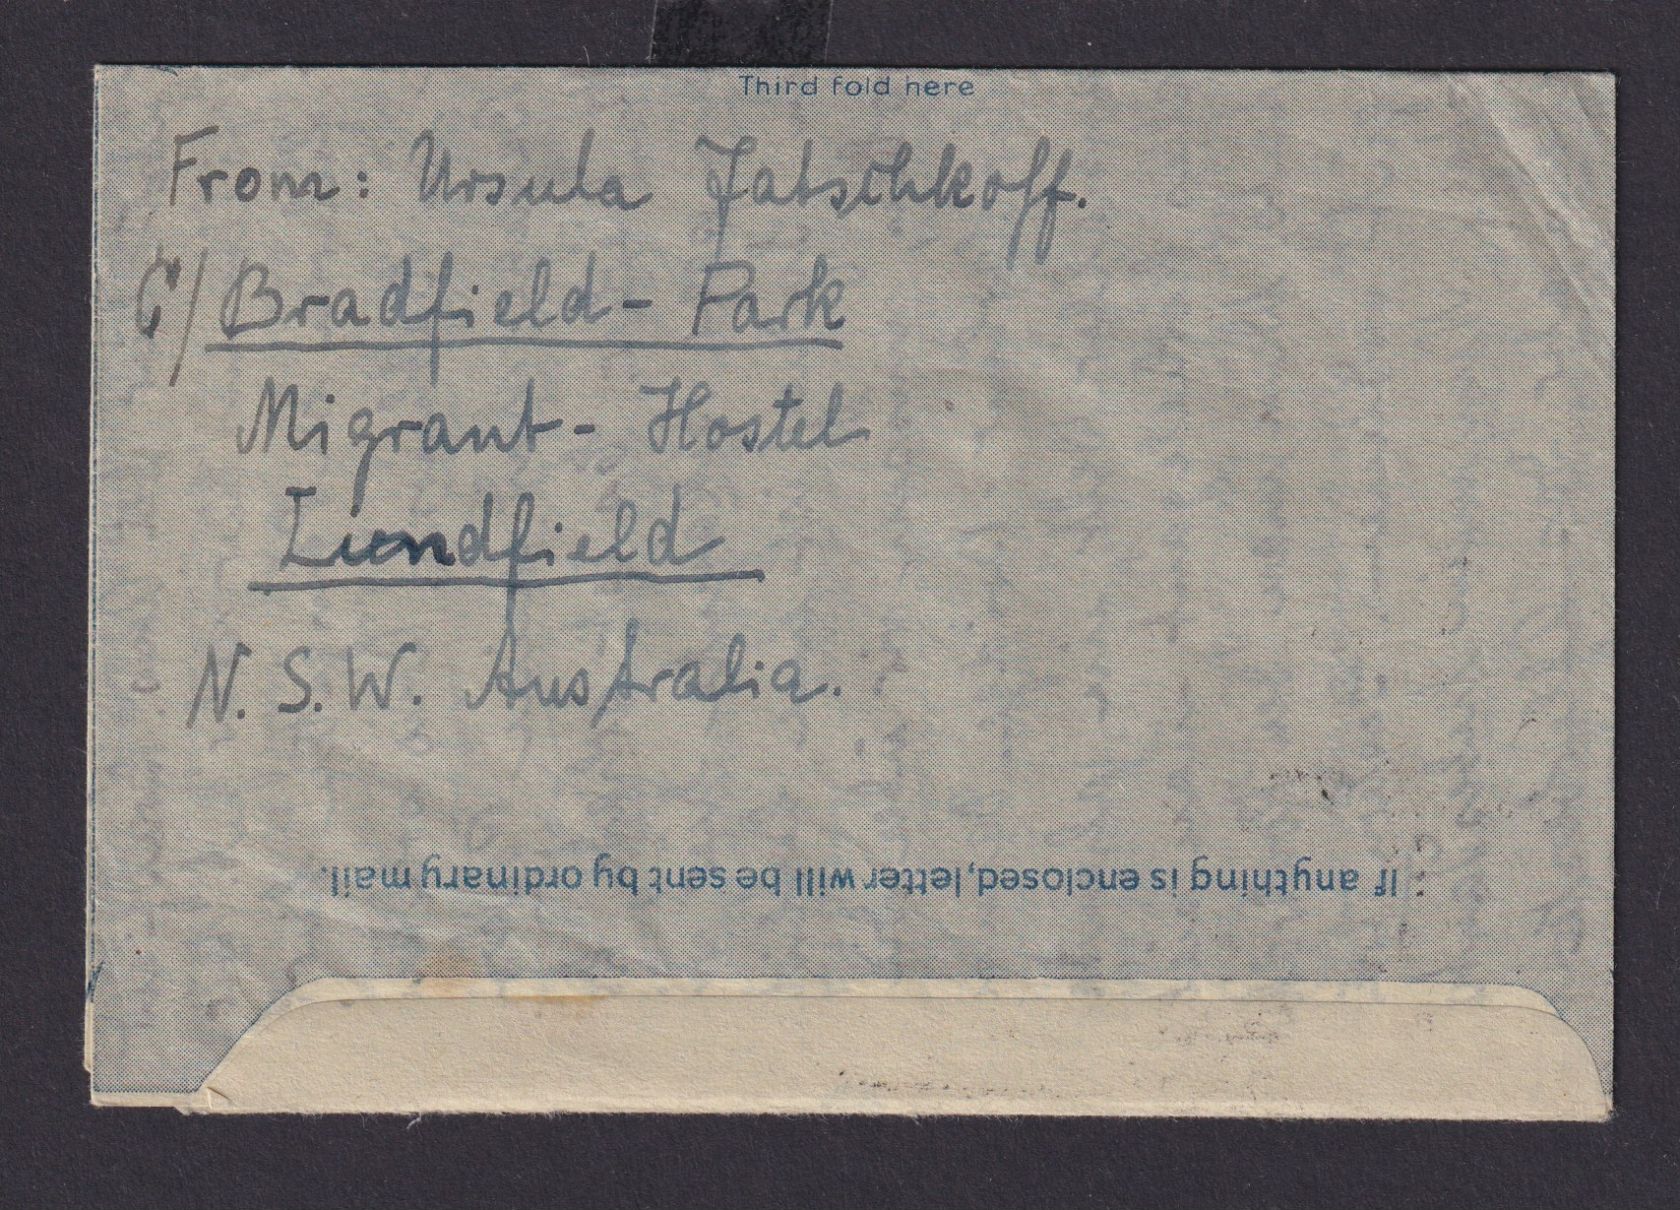 Third fold here
From: Ursula Jatschkoff.
C/ Bradfield - Park
Migrant - Hostel
Lundfield
N. S. W. Australia.
If anything is enclosed, letter will be sent by ordinary mail.